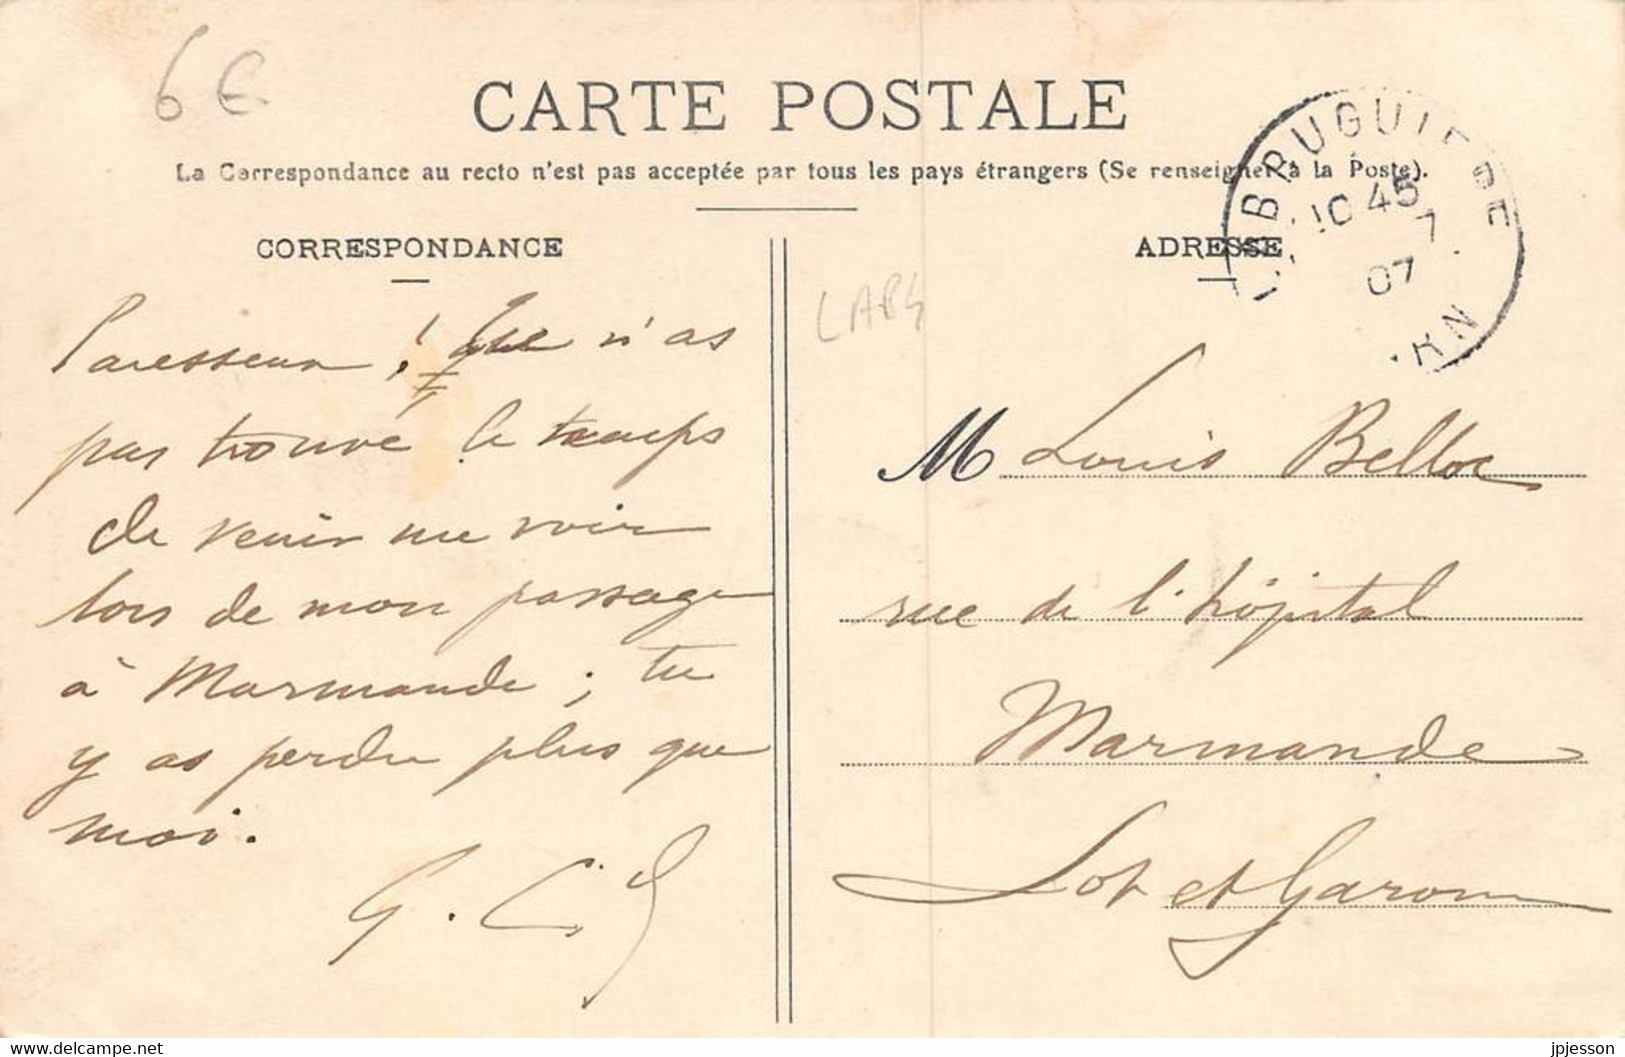 6 €
CARTE POSTALE
La Correspondance au recto n'est pas acceptée par tous les pays étrangers (Se renseigner à la Poste).
CORRESPONDANCE
Paresseux ! Tu n'as
pas trouvé le temps
de venir me voir
lors de mon passage
à Marmande ; tu
y as perdu plus que
moi.
G. C.
ADRESSE
BRUGUIERE
10 45
7
07
RN
M Louis Belloc
rue de l'hôpital
Marmande
Lot et Garonne
www.delcampe.net
jpjesson